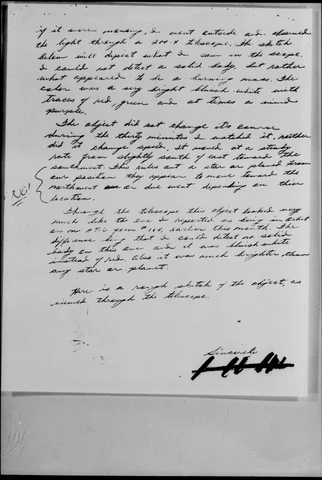 if it were moving, I went outside and observed
the light through a 200 X telescope. The sketch
below will depict what I saw in the scope.
I could not detect a solid body, but rather
what appeared to be a burning mass. The
color was a very bright bluish white with
traces of red, green and at times a mixed
purple.
The object did not change it's course
during the thirty minutes I watched it, neither
did it change speed. It moved at a steady
rate from slightly south of east toward the
southwest. This rules out a star or planet from
our position they appear to move toward the
northwest or due west depending on their
location.
Through the telescope this object looked very
much like the one I reported as being in orbit
on an earlier this month. The
difference being that I could detect no solid
body on this one and it was bluish white
instead of red. Also it was much brighter than
any star or planet.
Here is a rough sketch of the object, as
viewed through the telescope.
Sincerely